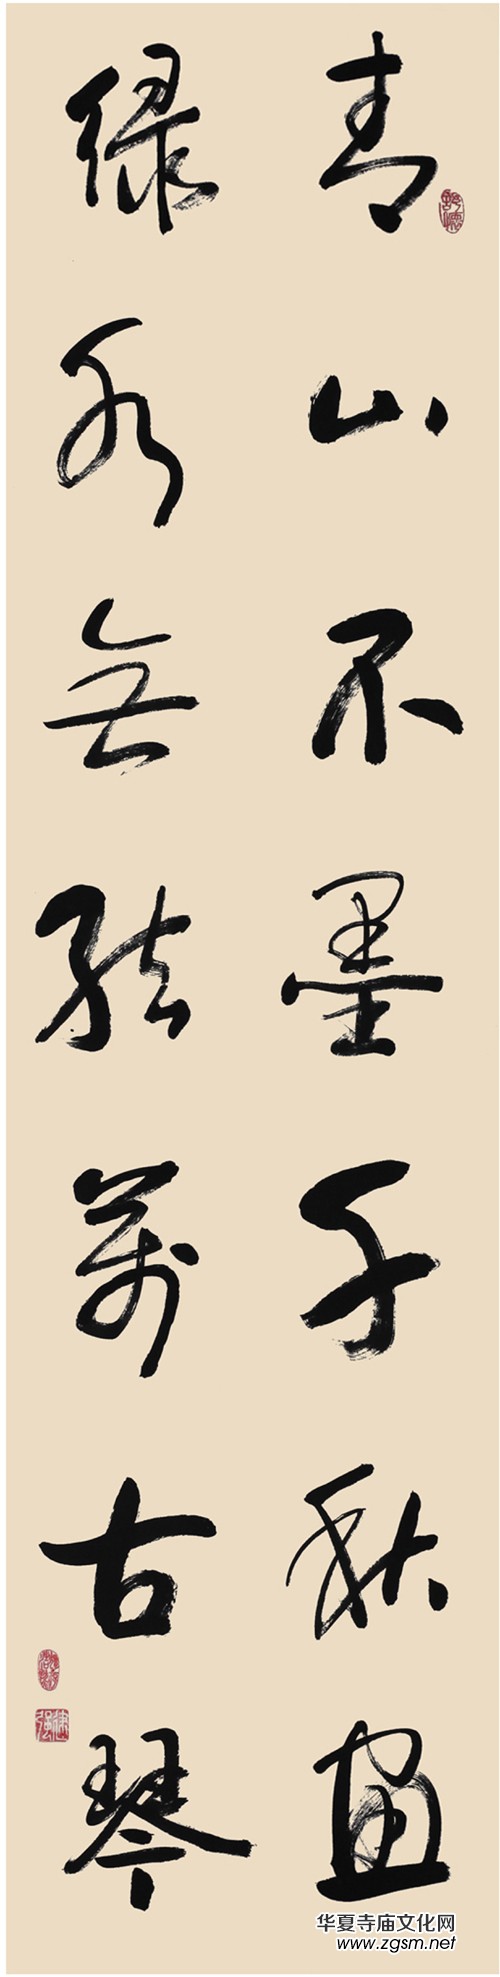 青山不墨千秋画
绿水无弦万古琴
华夏寺庙文化网
www.zgsm.net